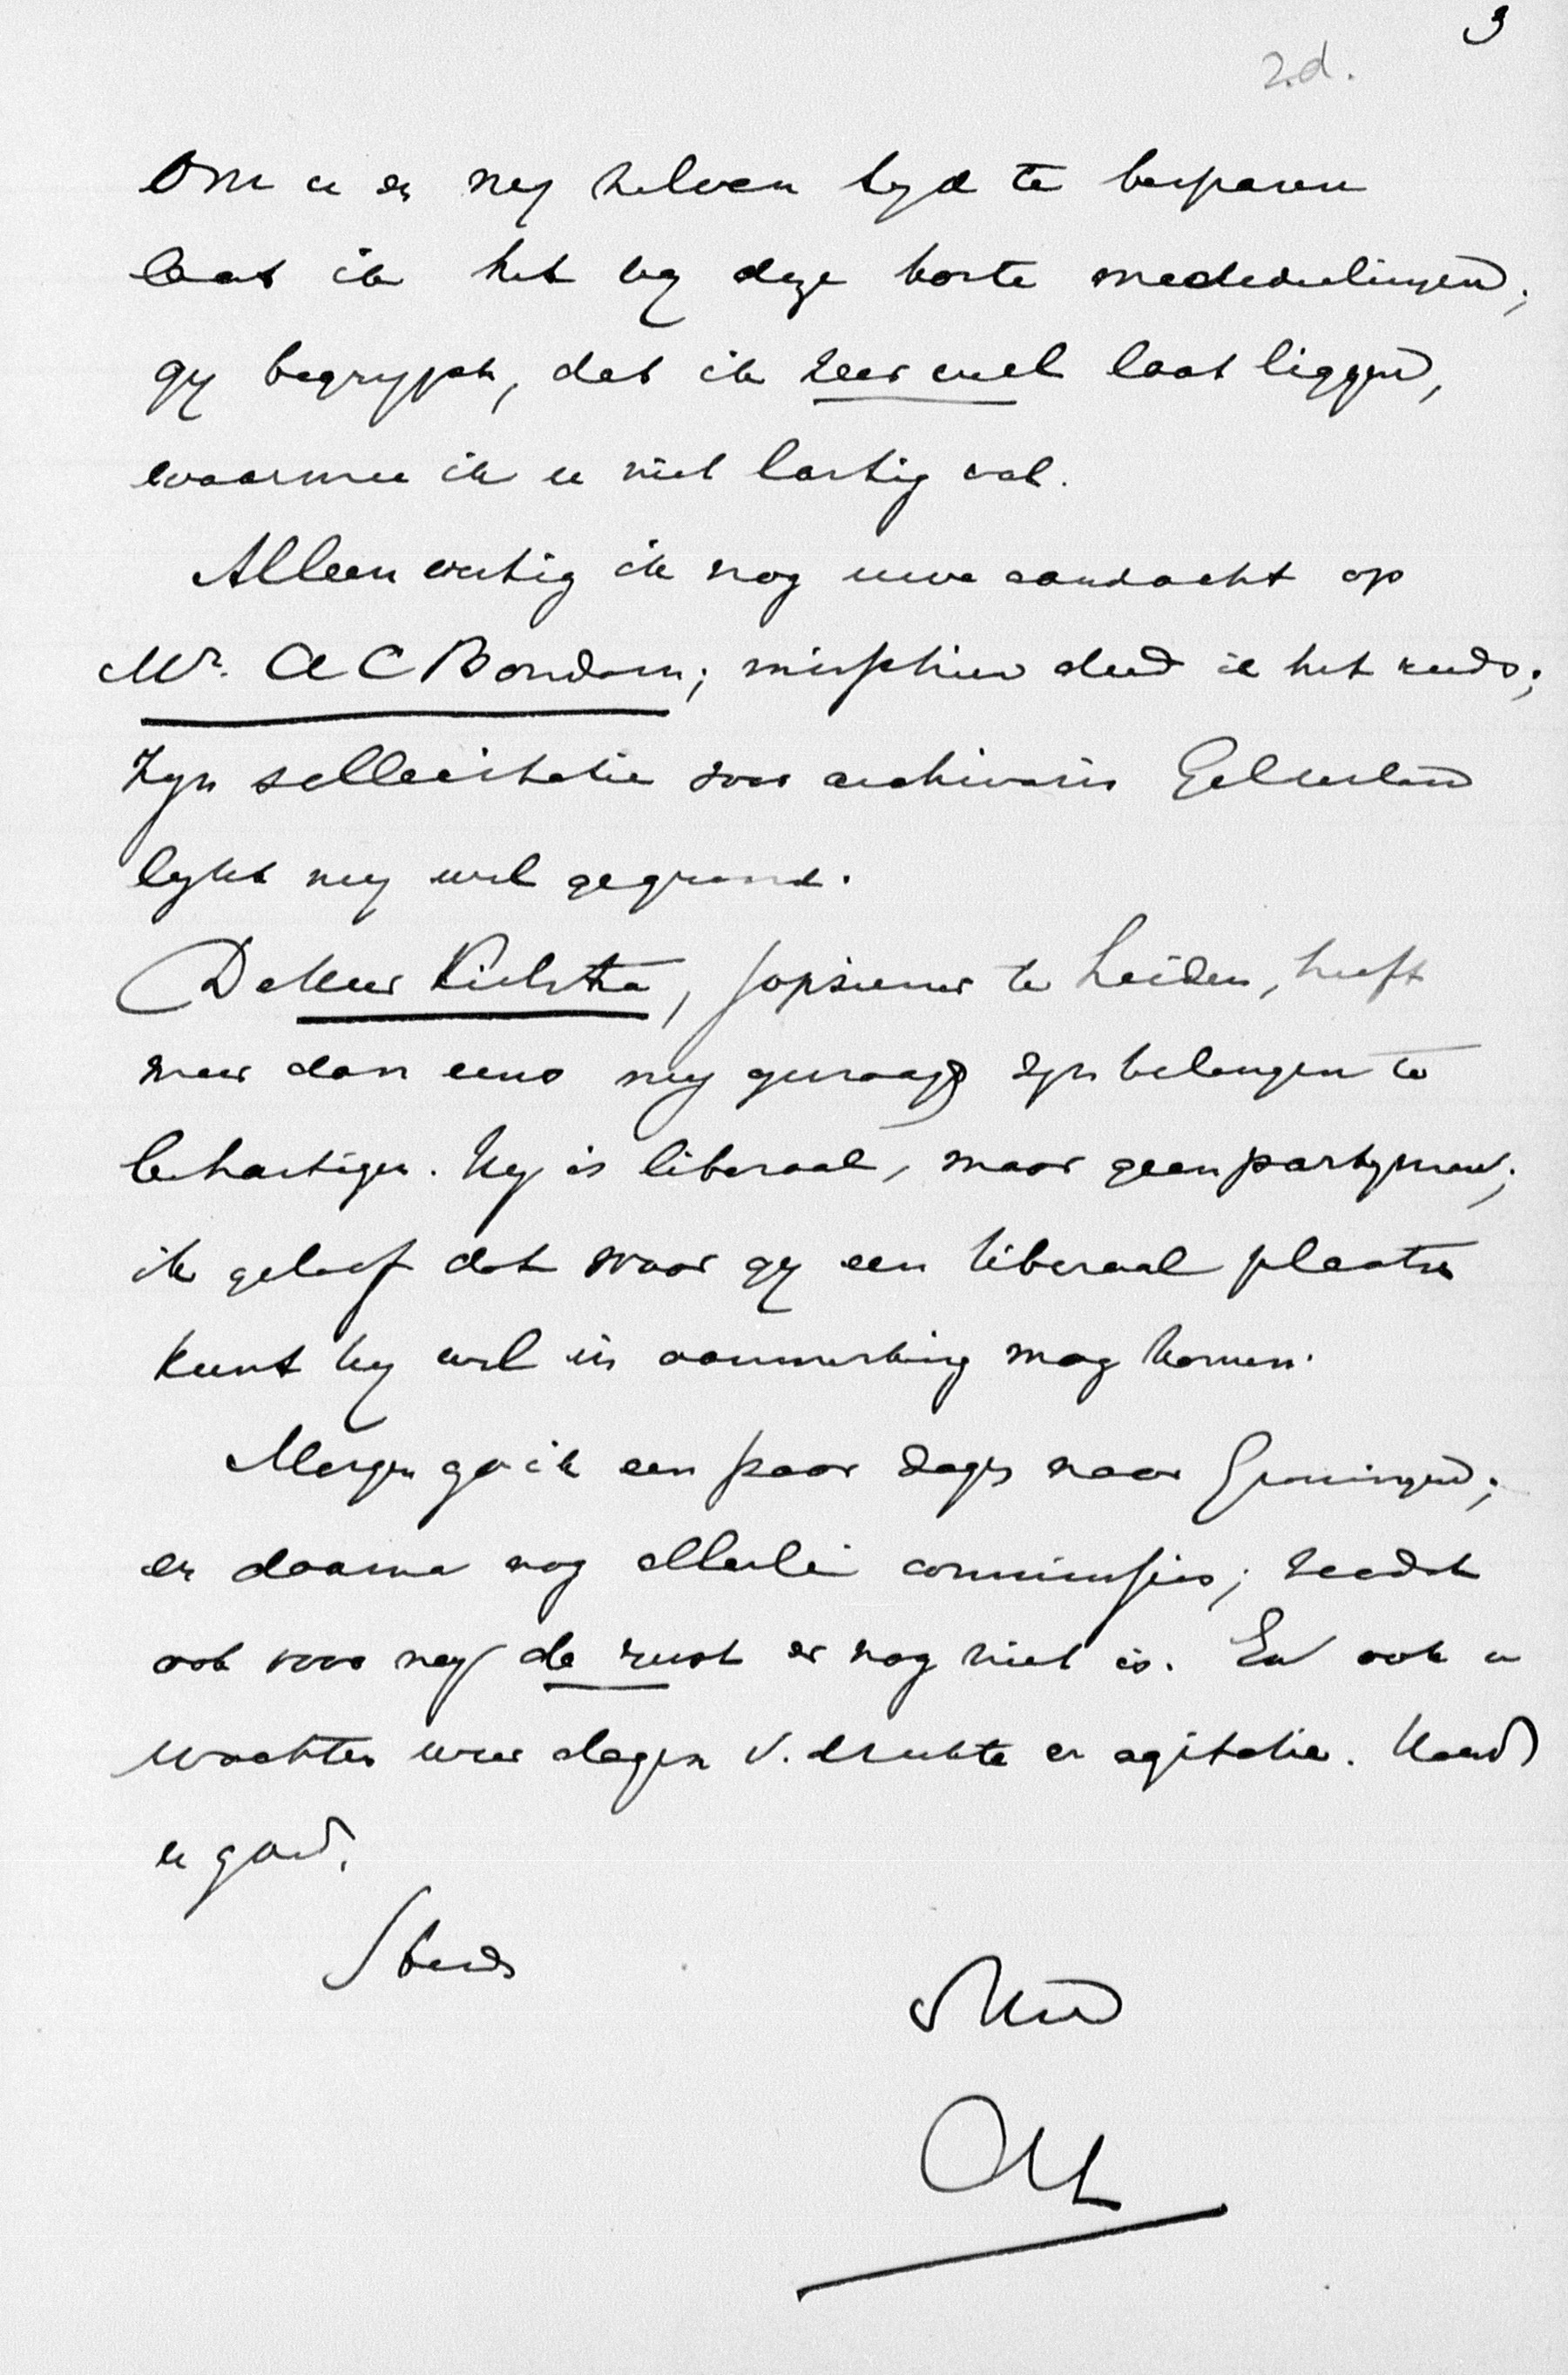 3
z.d.
Om u en my zelven tyd te besparen
laat ik het by deze korte mededeelingen;
gy begrypt, dat ik zeer veel laat liggen,
waarmee ik u niet lastig val.
Alleen vestig ik nog uwe aandacht op
Mr. A C Bondam; misschien deed ik het reeds;
zyn sollicitatie voor archivaris Gelderland
lykt my wel gegrond.
De Heer , opziener te Leiden, heeft
meer dan eens my gevraagd zyn belangen te
behartigen. Hy is liberaal, maar geen partyman;
ik geloof dat waar gy een liberaal plaatsen
kunt hy wel in aanmerking mag komen.
Morgen ga ik een paar dagen naar Groningen;
en daarna nog allerlei commissies; zoodat
ook voor my de rust er nog niet is. En ook u
wachten weer dagen v. drukte en agitatie. Houd
u goed.
Steeds